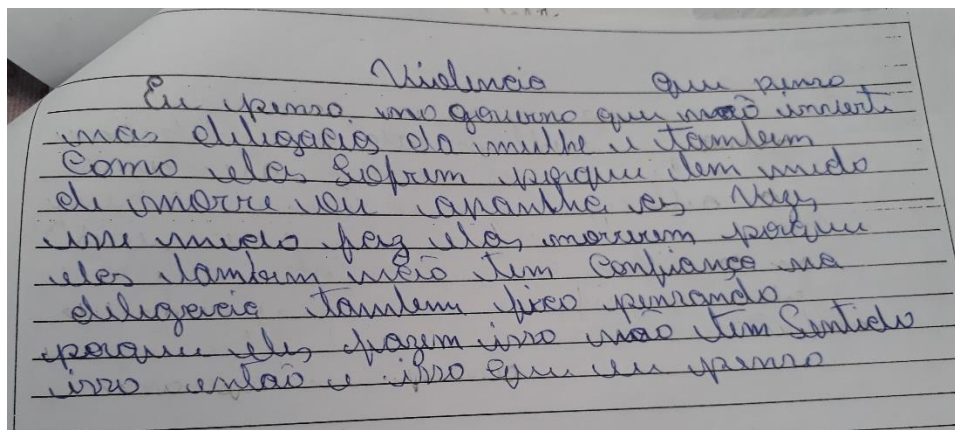 Violencia que penso
Eu penso no governo que não inverti
nas deligacias da mulhe e tambem
como elas sofrem porque tem medo
de morre ou apanha as vezes
esse medo faz elas morrerem porque
elas tambem não tem confiança na
delegacia tambem fico pensando
porque eles fazem isso não tem sentido
isso então e isso que eu penso